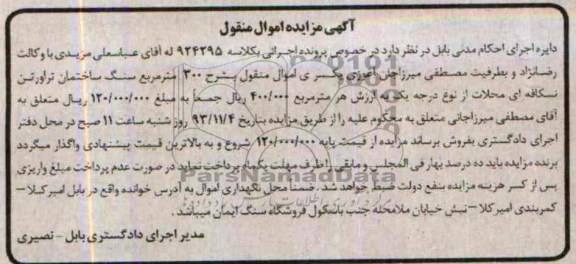 آگهی مزایده اموال منقول
دایره اجرای احکام مدنی بابل در نظر دارد در خصوص پرونده اجرائی بکلاسه ۹۲۴۲۹۵ له آقای عباسعلی مزیدی با وکالت
رضانژاد و بطرفیت مصطفی میرزاجانی فیروزی یکسری اموال منقول بشرح ۳۰۰ مترمربع سنگ ساختمان تراورتن
نسکافه ای محلات از نوع درجه یک به ارزش هر مترمربع ۴۰۰/۰۰۰ ریال جمعاً به مبلغ ۱۲۰/۰۰۰/۰۰۰ ریال متعلق به
آقای مصطفی میرزاجانی متعلق به محکوم علیه را از طریق مزایده بتاریخ ۹۳/۱۱/۴ روز شنبه ساعت ۱۱ صبح در محل دفتر
اجرای دادگستری بفروش برساند مزایده از قیمت پایه ۱۲۰/۰۰۰/۰۰۰ شروع و به بالاترین قیمت پیشنهادی واگذار میگردد
برنده مزایده باید ده درصد بهار فی المجلس و مابقی را ظرف مهلت یکماه پرداخت نماید در صورت عدم پرداخت مبلغ واریزی
پس از کسر هزینه مزایده بنفع دولت ضبط خواهد شد. ضمناً محل نگهداری اموال به آدرس خوانده واقع در بابل امیرکلا –
کمربندی امیرکلا – نبش خیابان ملامحله جنب باسکول فروشگاه سنگ ایمان میباشد.
مدیر اجرای دادگستری بابل - نصیری
ParsNamadData